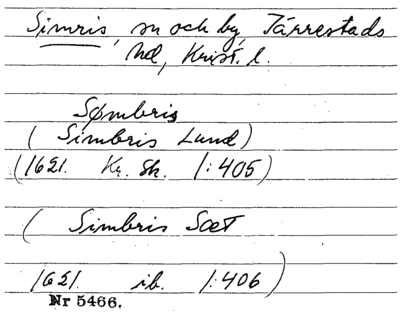 Simris, sn och by, Tärrestads
hd, Krist. l.
Sømbris
( Simbris Lund )
(1621. Kr. Sk. 1:405)
( Simbris Sæt
1621. ib. 1:406 )
Nr 5466.